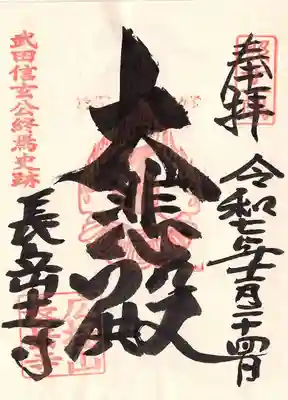 奉拝
令和七年十一月二十四日
大悲殿
武田信玄公終焉史跡
長岳寺